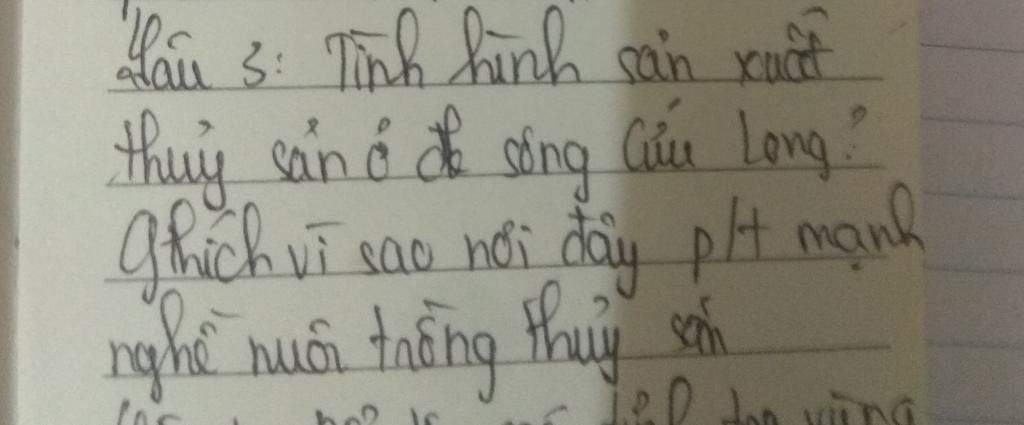 Câu 3: Tình hình sản xuất
thuỷ sản ở đb sông Cửu Long?
gthích vì sao nơi đây pH mạnh
nghề nuôi trồng thuỷ sản